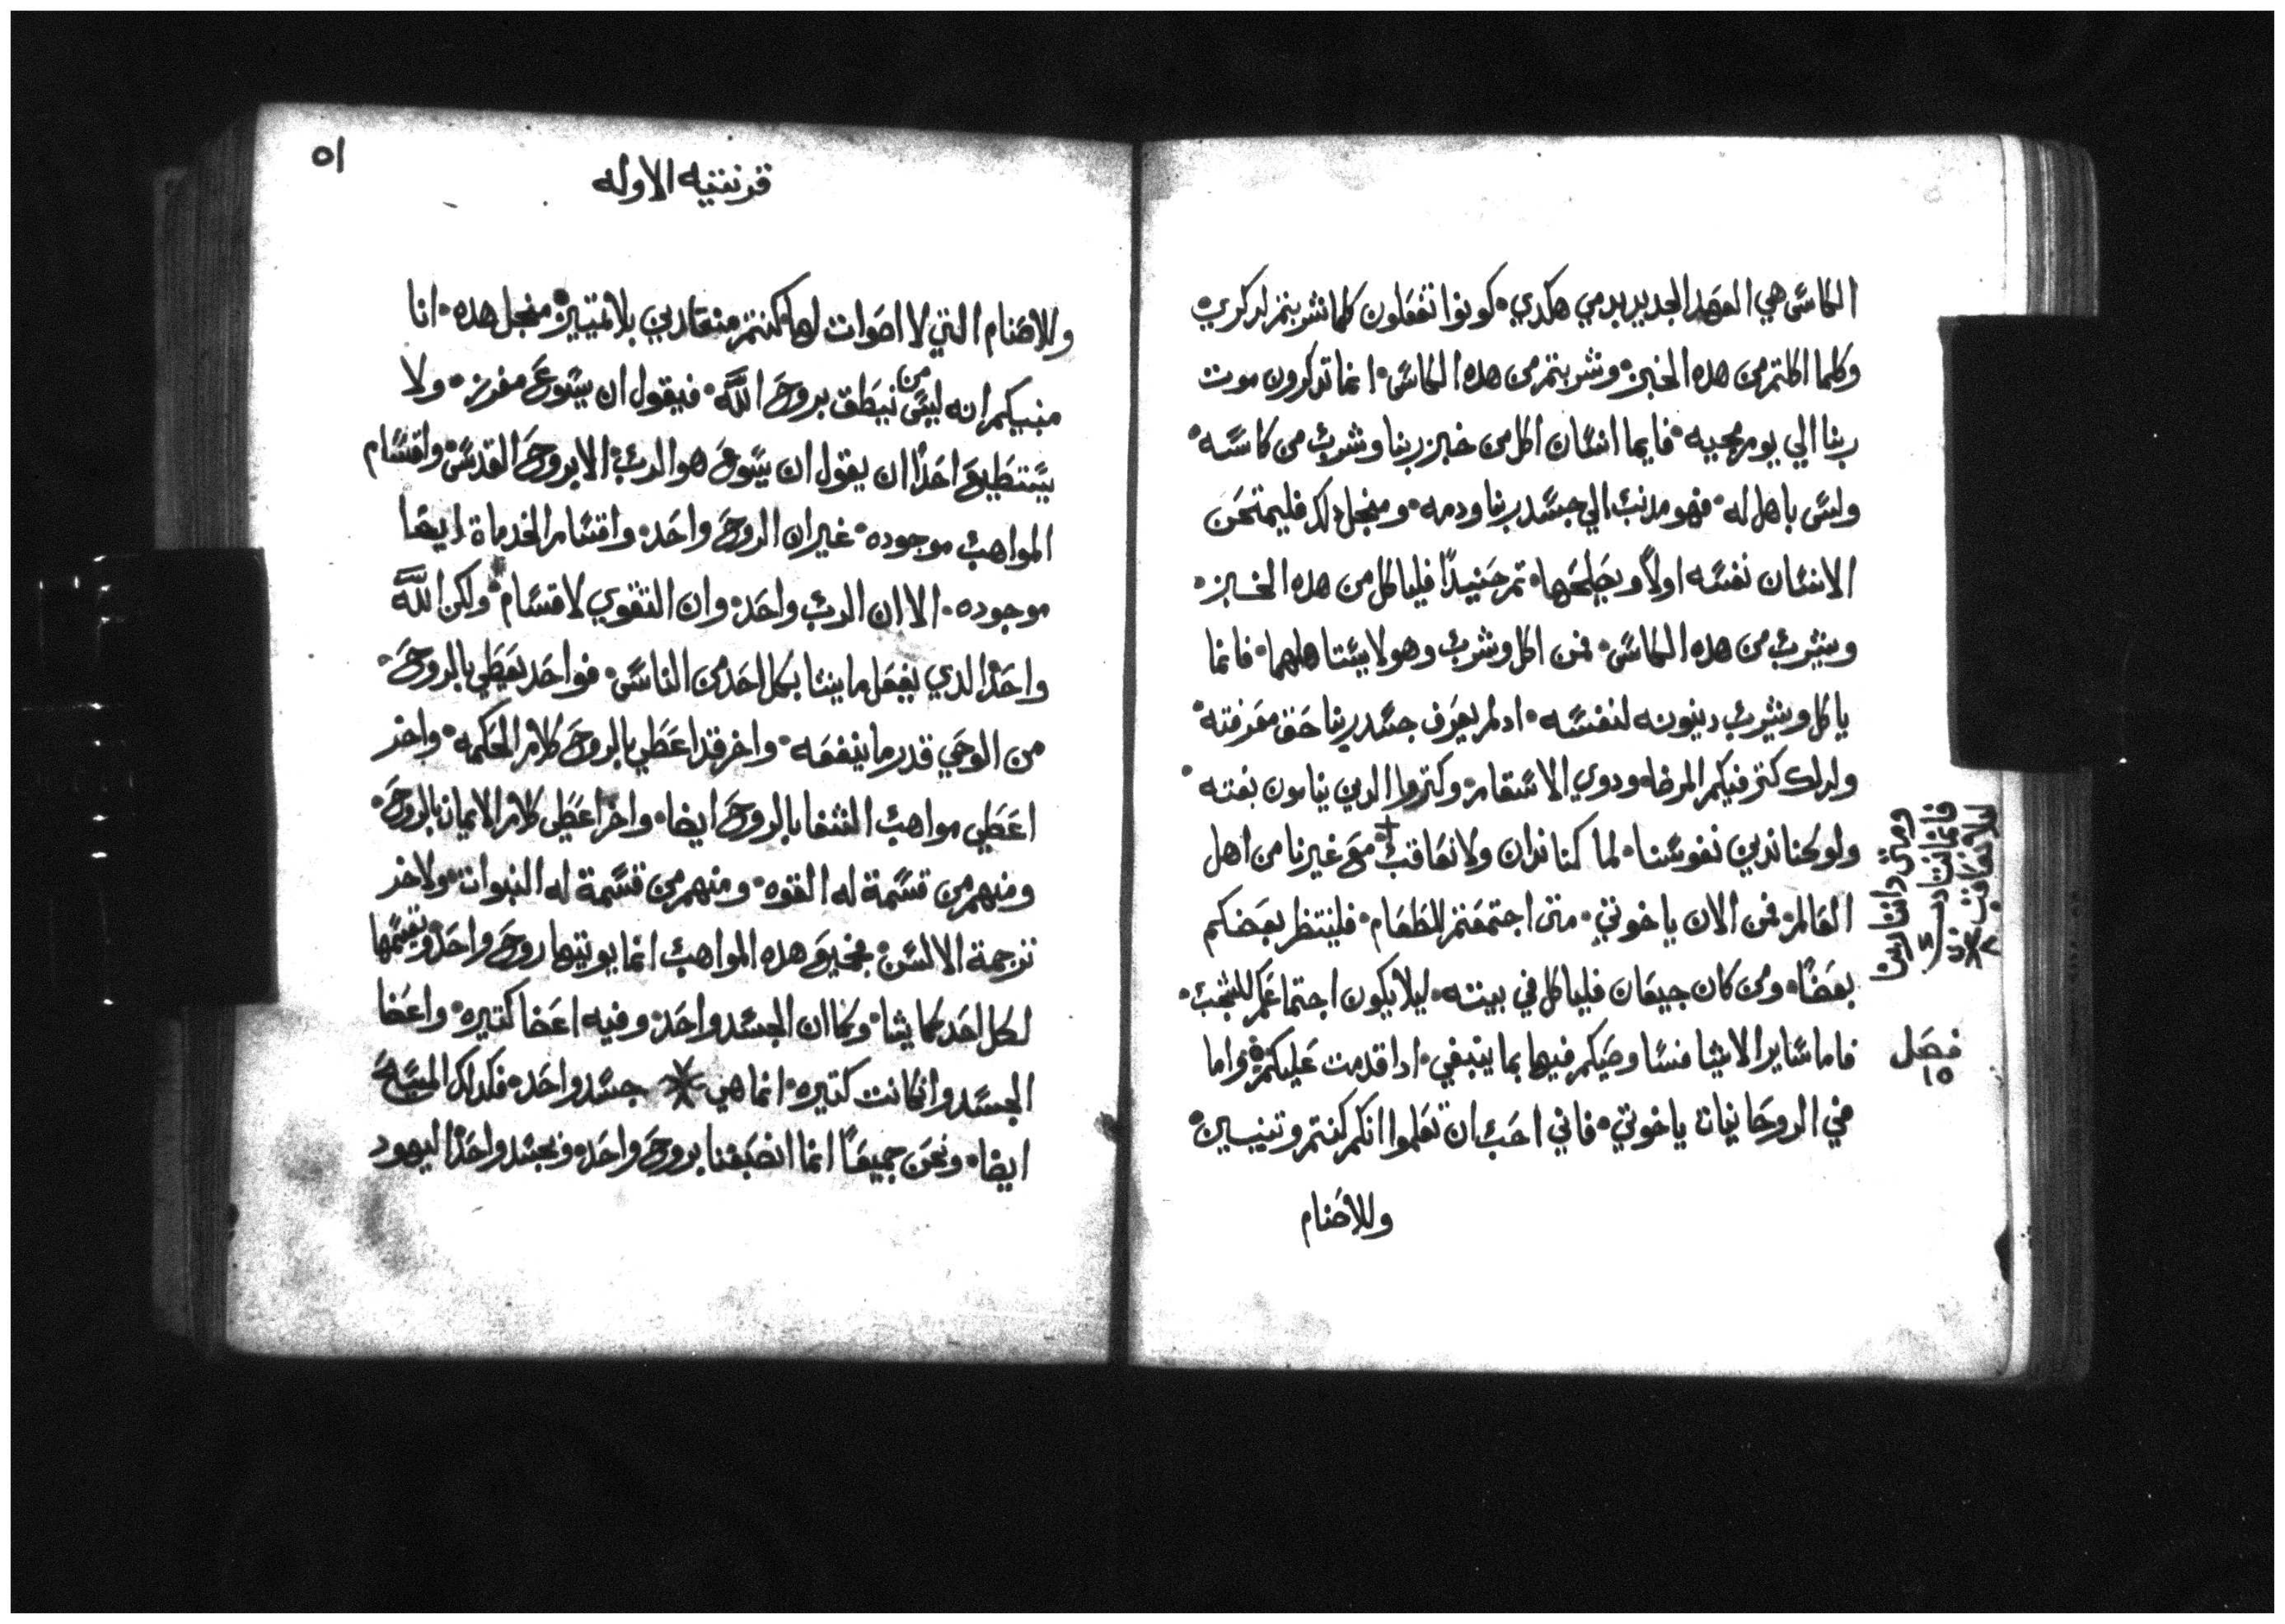 الكاس هي العهد الجديد بدمي هكدي كونوا تفعلون كلما شربتم لدكري
وكلما اكلتم من هده الخبز وشربتم من هده الكاس انما تدكرون موت
ربنا الي يوم مجيه فايما انسان اكل من خبز ربنا وشرب من كاسه
وليس باهل له فهو مدنب الي جسد ربنا ودمه ومنجل دلك فليمتحن
الانسان نفسه اولاً ويصلحها تم حنيدًا فلياكل من هده الخبز
ويشرب من هده الكاس فمن اكل وشرب وهو لا يستاهلهما فانما
ياكل ويشرب دينونه لنفسه ادلم يعرف جسد ربنا حق معرفته
ولدلك كتر فيكم المرضا ودوي الاسقام وكتروا الدين ينامون بغته
ولو كنا ندين نفوسنا لما كنا ندان ولا نعاقب مع غيرنا من اهل
العالم فمن الان ياخوتي متى اجتمعتم للطعام فلينتظر بعضكم
بعضًا ومن كان جيعان فلياكل في بيته ليلا يكون اجتماعكم للشجب
فاما ساير الاشيا فساوصيكم فيها بما ينبغي ادا قدمت عليكم واما
في الروحانيات ياخوتي فاني احب ان تعلموا انكم كنتم وتنيين
وللاصنام
ومتى داننا ربنا
فانما
ليلا نعاقب
فصل
١٥
٥١
قرنتيه الاوله
وللاصنام التي لا اصوات لها كنتم منقادين بلا تمييز منجل هده انا
منبيكم انه ليس من ينطق بروح الله فيقول ان يسوع مفرز ولا
يستطيع احدًا ان يقول ان يسوع هو الرب الا بروح القدس واقسام
المواهب موجوده غير ان الروح واحد واقسام الخدماة ايضا
موجوده الا ان الرب واحد وان التقوي لاقسام ولكن الله
واحد الدي يفعل ما يشا بكل احد من الناس فواحد يعطي بالروح
من الوحي قدر ما ينفعه واخر قد اعطي بالروح كلام الحكمه واخر
اعطي مواهب الشفا بالروح ايضا واخر اعطي كلام الايمان بالروح
ومنهم من قسمة له القوه ومنهم من قسمة له النبوات ولاخر
ترجمة الالسن فجميع هده المواهب انما يوتيها روح واحد ويقسمها
لكل احد كما يشا وكما ان الجسد واحد وفيه اعضا كتيره واعضا
الجسد وان كانت كتيره انما هي جسد واحد فكدلك المسيح
ايضا ونحن جميعًا انما انصبغنا بروح واحده ونجسد واحد اليهود